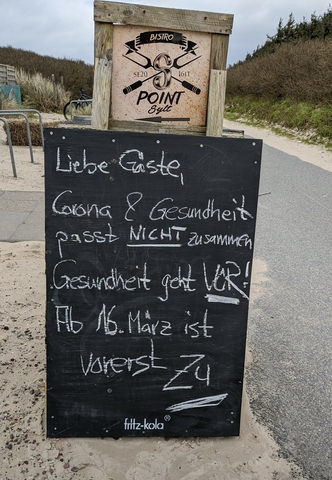 BISTRO
S
POINT
Sylt
Liebe Gäste,
Corona & Gesundheit
passt NICHT zusammen
Gesundheit geht VOR!
Ab 16. März ist
vorerst Zu
fritz-kola®